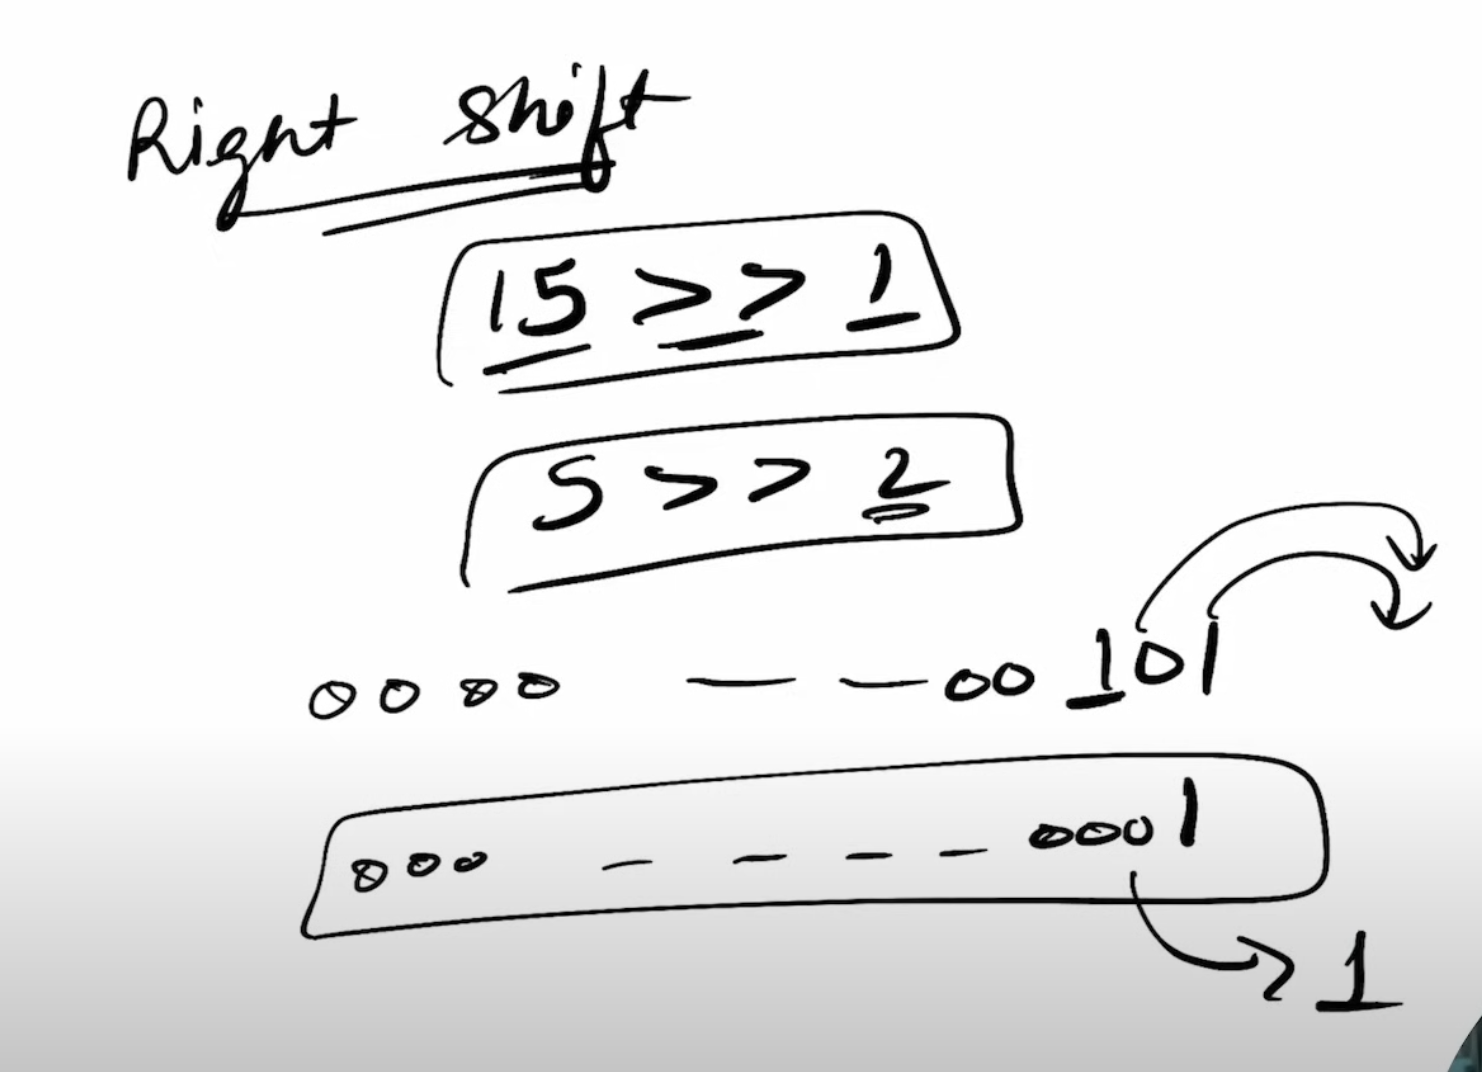 Right Shift
15 >> 1
5 >> 2
0000 — — 00 101
000 — — — — 0001
1